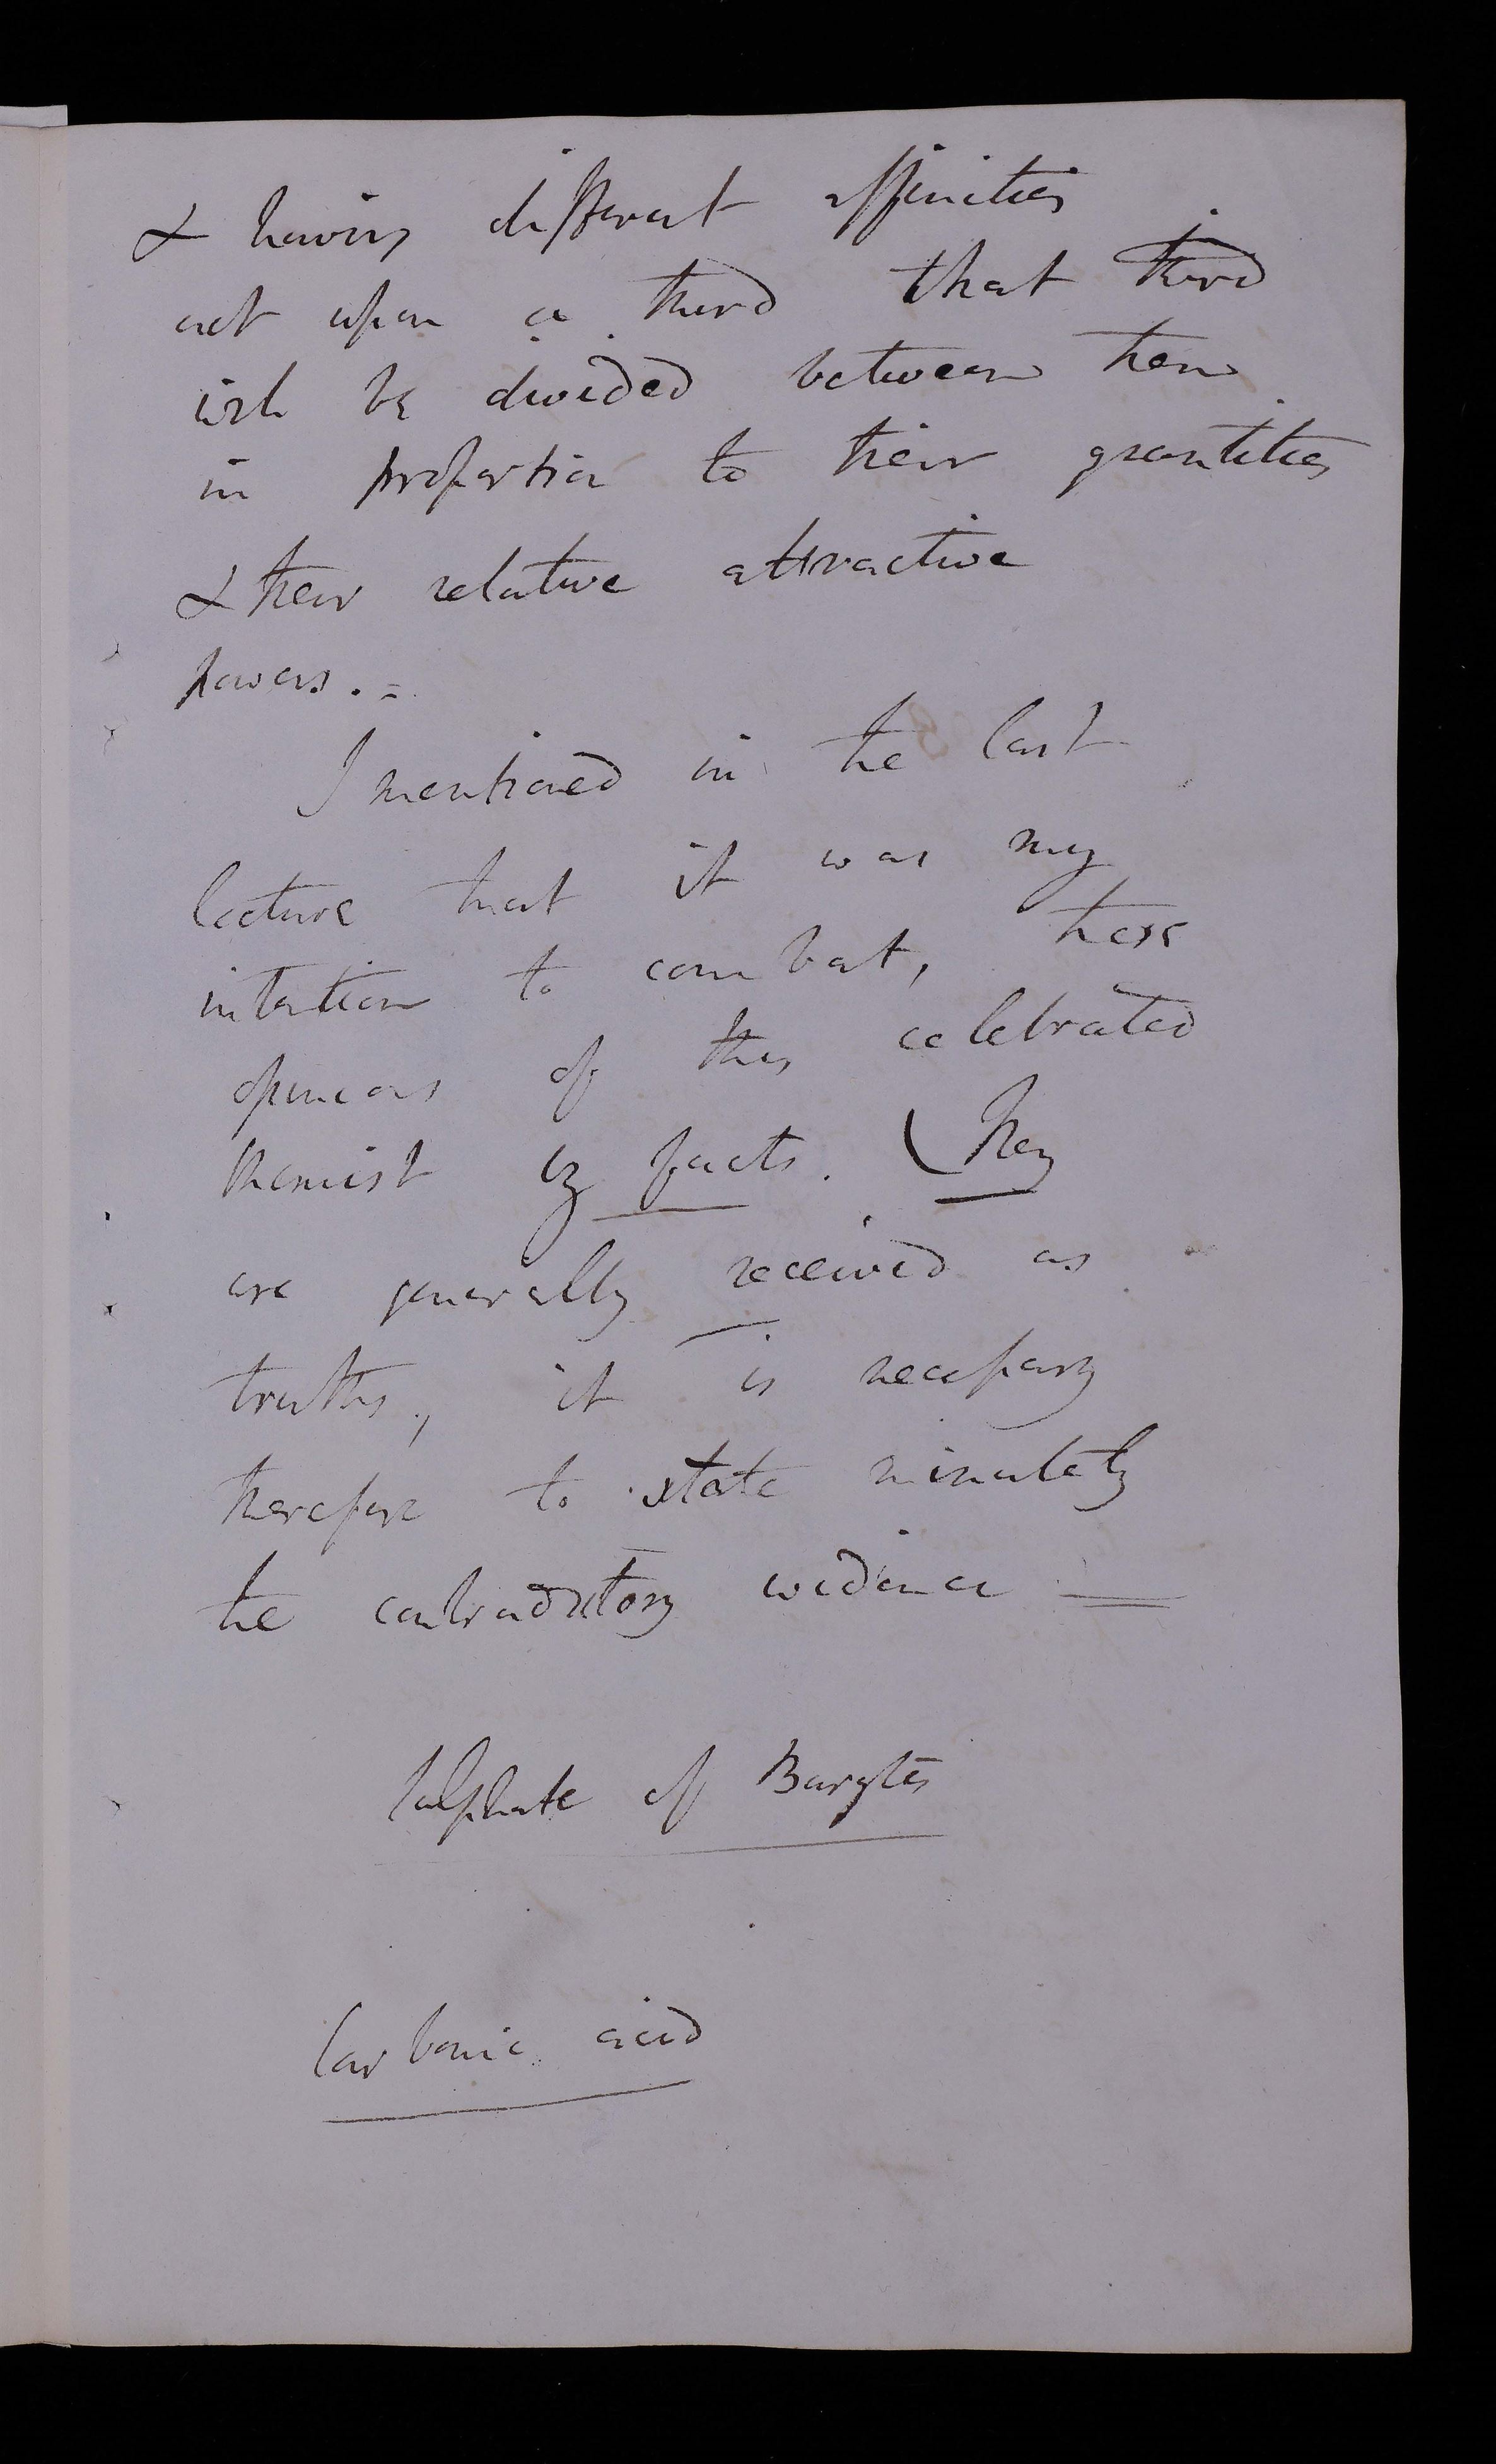 & having different affinities
act upon a third that third
will be divided between them
in proportion to their quantities
& their relative attractive
powers. =
I mentioned in the last
lecture that it was my
intention to combat, these
opinions of this celebrated
Chemist by facts. (They
are generally received as
truths, it is necessary
therefore to state minutely
the contradictory evidence =
Sulphate of Barytes
Carbonic acid